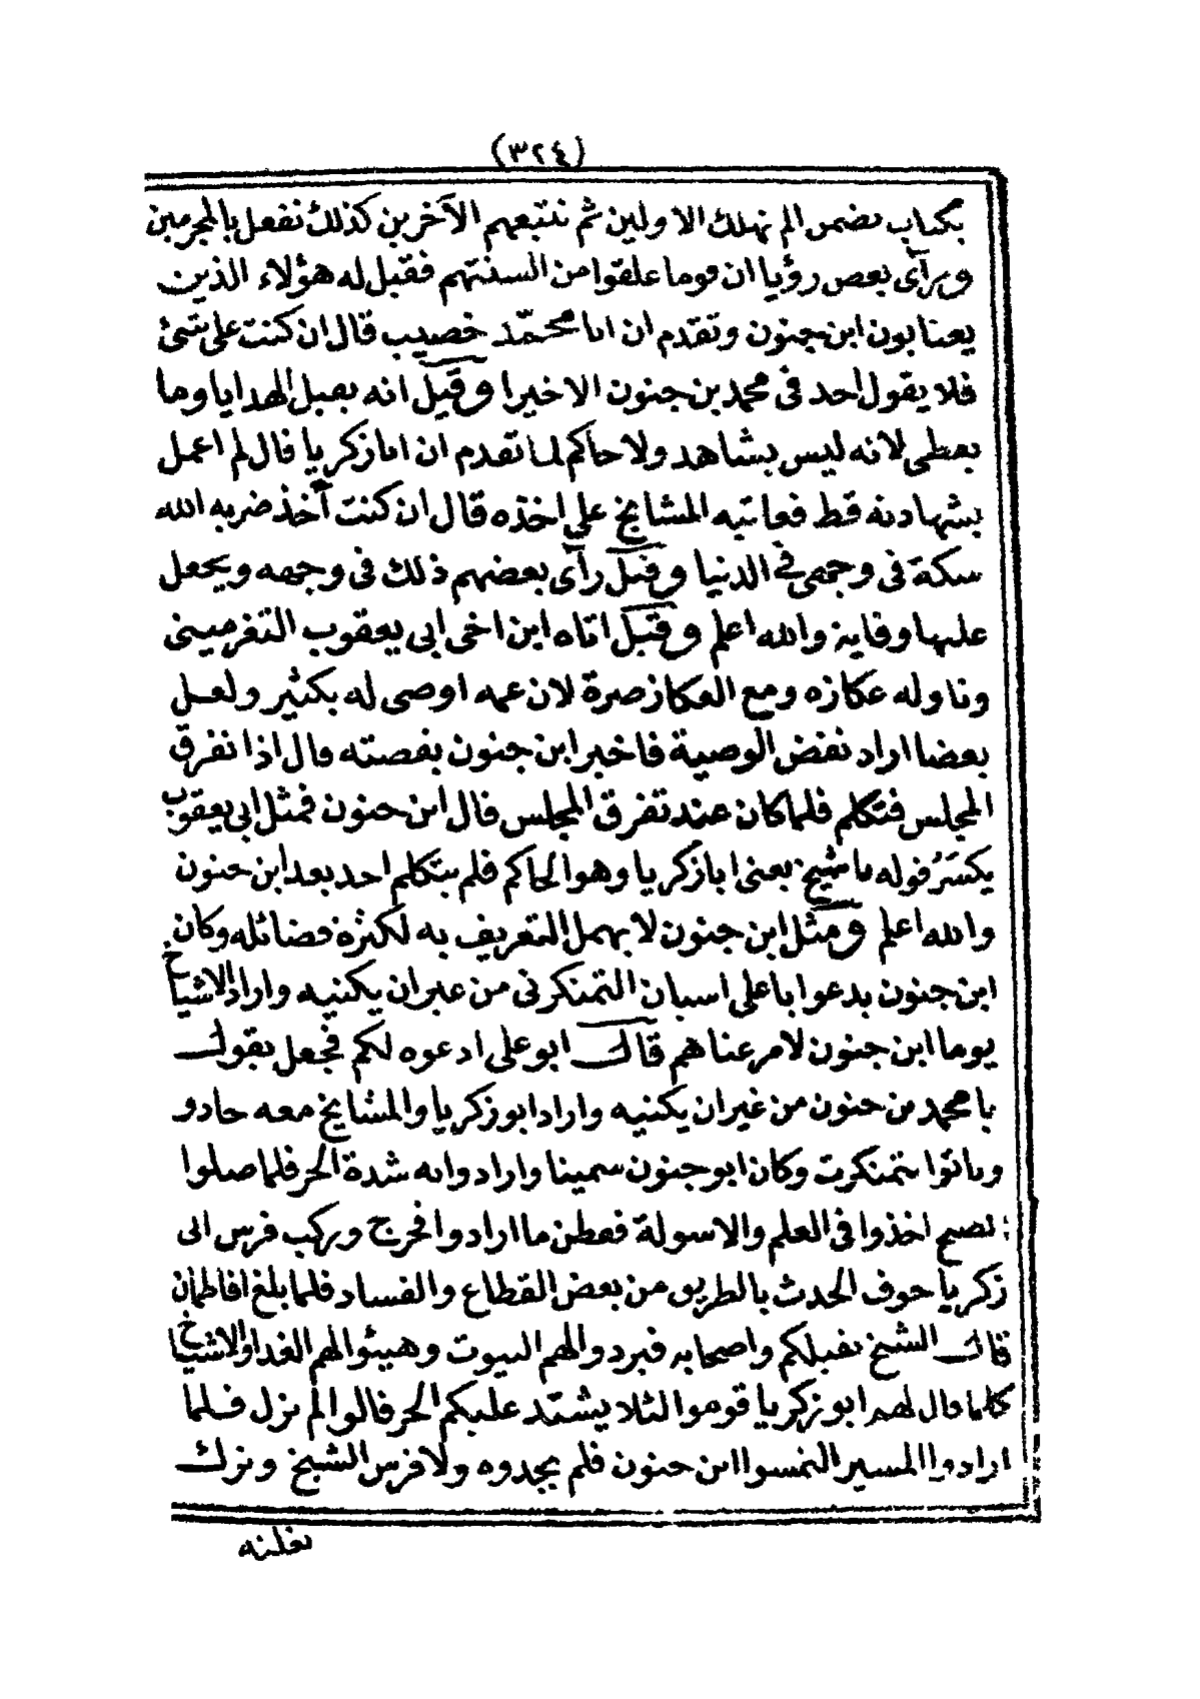 (٣٢٤)
بكتاب يضمن الم نهلك الاولين ثم نتبعهم الآخرين كذلك نفعل بالمجرمين
ورأى بعض رؤيا ان قوما علقوا من السنتهم فقيل له هؤلاء الذين
يغتابون ابن جنون وتقدم ان ابا محمد خصيب قال ان كنت على شئ
فلا يقول احد فى محمد بن جنون الا خيرا وقيل انه يقبل الهدايا وما
يعطى لانه ليس بشاهد ولا حاكم لما تقدم ان ابا زكريا قال لم اعمل
بشهادته قط فعاتبه المشايخ على اخذه قال ان كنت آخذ ضربه الله
سكة فى وجهى فى الدنيا وقيل رأى بعضهم ذلك فى وجهه ويجعل
عليها وقاية والله اعلم وقيل اتاه ابن اخى ابى يعقوب التغرمينى
وناوله عكازه ومع العكاز صرة لان عمه اوصى له بكثير ولعل
بعضا اراد نقض الوصية فاخبر ابن جنون بقصته قال اذا تفرق
المجلس فتكلم فلما كان عند تفرق المجلس قال ابن جنون فمثل ابى يعقوب
يكسر قوله يا شيخ يعنى ابا زكريا وهو الحاكم فلم يتكلم احد بعد ابن جنون
والله اعلم ومثل ابن جنون لا يهمل التعريف به لكثرة فضائله وكان
ابن جنون يدعو ابا على اسبان التمنكرتى من غير ان يكنيه واراد الاشياخ
يوما ابن جنون لامر عناهم قال ابو على ادعوه لكم فجعل يقول
يا محمد بن جنون من غير ان يكنيه واراد ابو زكريا والمشايخ معه جادو
وباتوا بتمنكرت وكان ابو جنون سمينا وارادوا به شدة الحر فلما صلوا
الصبح اخذوا فى العلم والاسولة ففطن ما ارادوا فخرج وركب فرس ابى
زكريا خوف الحدث بالطريق من بعض القطاع والفساد فلما بلغ افاطمان
قال الشيخ نقيلكم واصحابه فبردوا لهم البيوت وهيئوا لهم الغدا والاشياخ
كلما قال لهم ابو زكريا قوموا لئلا يشتد عليكم الحر قالوا لم نزل فلما
ارادوا المسير التمسوا ابن جنون فلم يجدوه ولا فرس الشيخ ونزك
بغلته